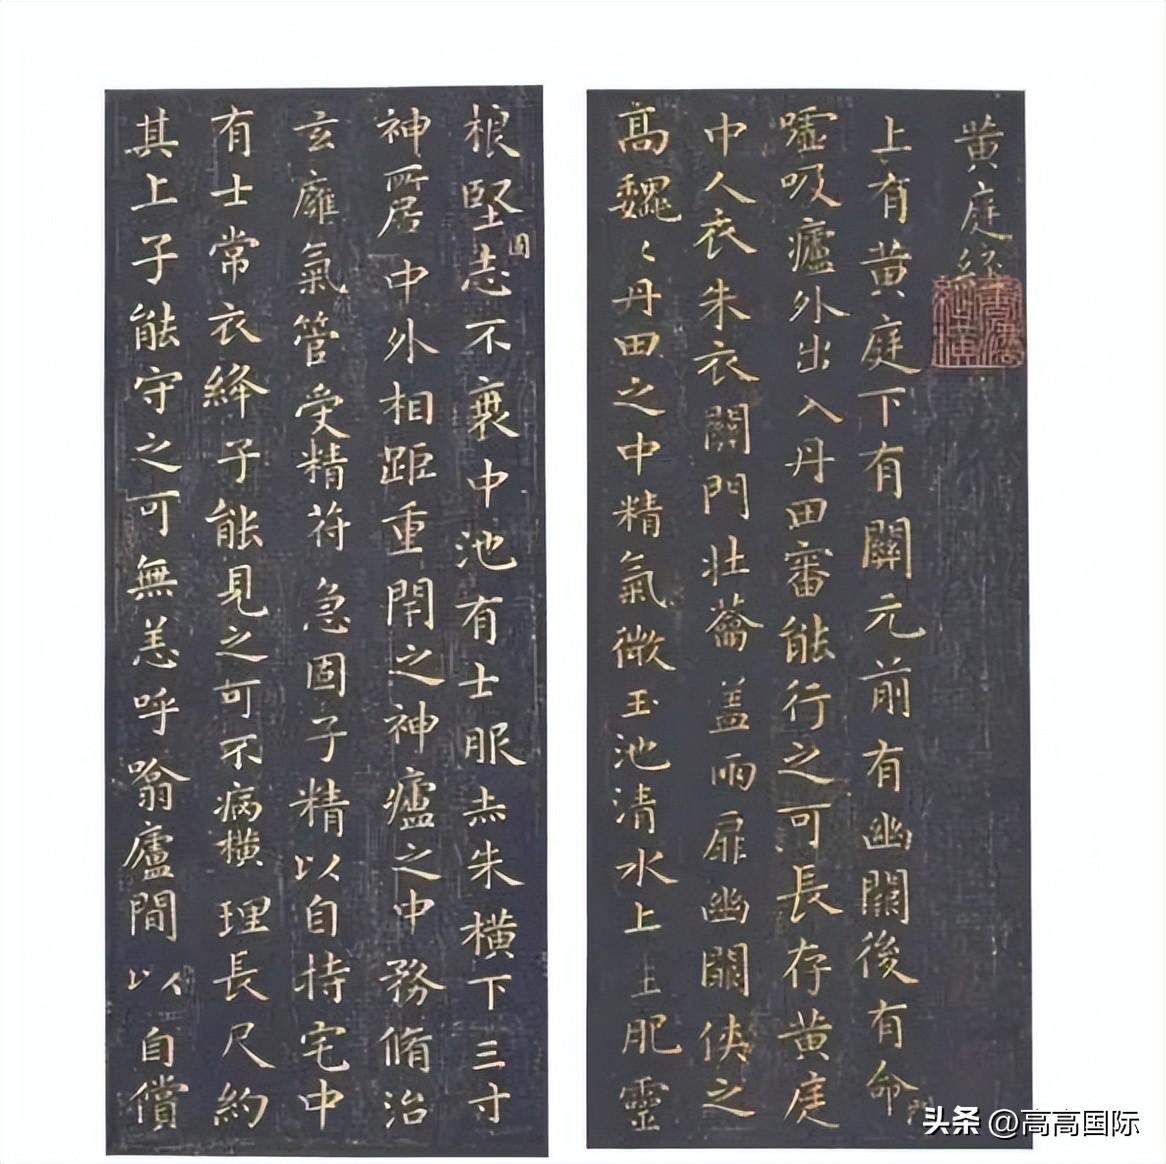 黄庭經
上有黄庭下有關元前有幽闕後有命門
噓吸廬外出入丹田審能行之可長存黄庭
中人衣朱衣關門壮籥盖兩扉幽闕俠之
髙魏〻丹田之中精氣微玉池清水上生肥靈
根堅固志不衰中池有士服赤朱横下三寸
神所居中外相距重閇之神廬之中務脩治
玄廱氣管受精符急固子精以自持宅中
有士常衣絳子能見之可不病横理長尺約
其上子能守之可無恙呼噏廬間以自償
头条 @高高国际